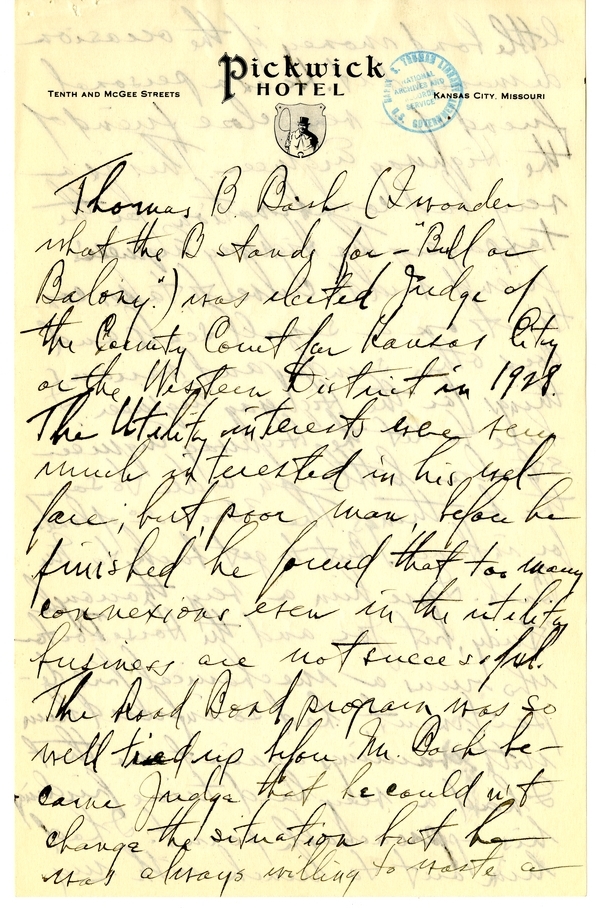 Pickwick
HOTEL
TENTH AND MCGEE STREETS
KANSAS CITY, MISSOURI
NATIONAL
ARCHIVES AND
SERVICE
Thomas B. Bash (I wonder
what the B stands for - "Bull or
Balony.") was elected Judge of
the County Court for Kansas City
or the Western District in 1928.
The Utility interests were very
much interested in his wel-
fare; but, poor man, before he
finished he found that too many
connexions even in the utility
business are not successful.
The Road Bond program was so
well tied up before Mr. Bash be-
came Judge that he could not
change the situation but he
was always willing to waste a